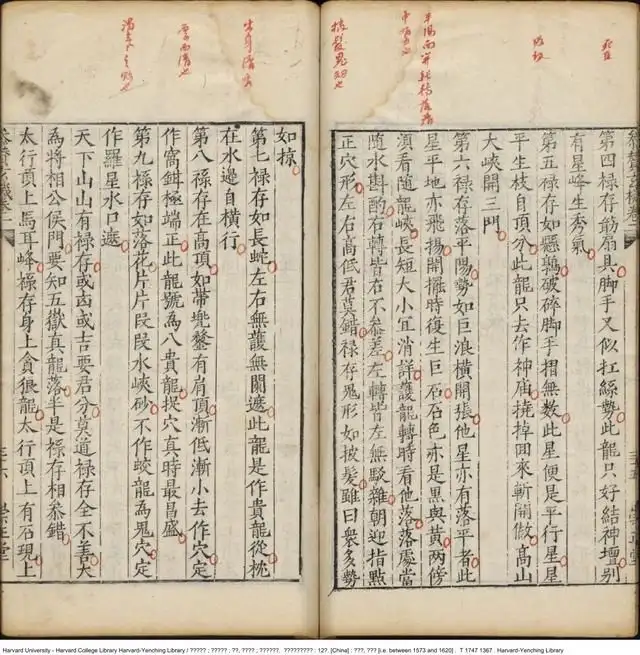 死直
放扳
平陽面
披髮鬼
第四祿存筋扇具脚手又似扛絲勢此龍只好結神壇別
有星峰生秀氣
第五祿存如懸鶉破碎脚手摺無数此星便是平行星星
平生枝自頂分此龍只去作神庙撓掉回來斬開倣高山
大峽開三門
第六祿存落平陽勢如巨浪横開張他星亦有落平者此
星平地亦飛揚開擁時復生巨石石色亦是黑與黄兩傍
須看随龍峽長短大小冝消詳護龍轉時看他落落處當
随水斟酌右轉皆右不叅差左轉皆左無駁雜朝迎指點
正穴形左右高低君莫錯禄存鬼形如披髮雖曰衆多勢
如掠
第七禄存如長蛇左右無護無闌遮此龍是作貴龍從枕
在水邊自横行
第八禄存在高頂如带兠鍪有肩頂漸低漸小去作穴定
作窩鉗極端正此龍號為八貴龍捉穴真時最昌盛
第九祿存如落花片片段段水峽砂不作蛟龍為鬼穴定
作羅星水口遮
天下山山有禄存或凶或吉要君分莫道禄存全不善大
為將相公侯門要知五嶽真龍落半是祿存相叅錯
太行頂上馬耳峰祿存身上貪狼龍太行頂上有石現上
三六
崇正堂
Harvard University - Harvard College Library Harvard-Yenching Library / ????? ; ????? ; ??, ???? ; ??????. ????????? : 12?. [China] : ???, ??? [i.e. between 1573 and 1620] . T 1747 1367 . Harvard-Yenching Library